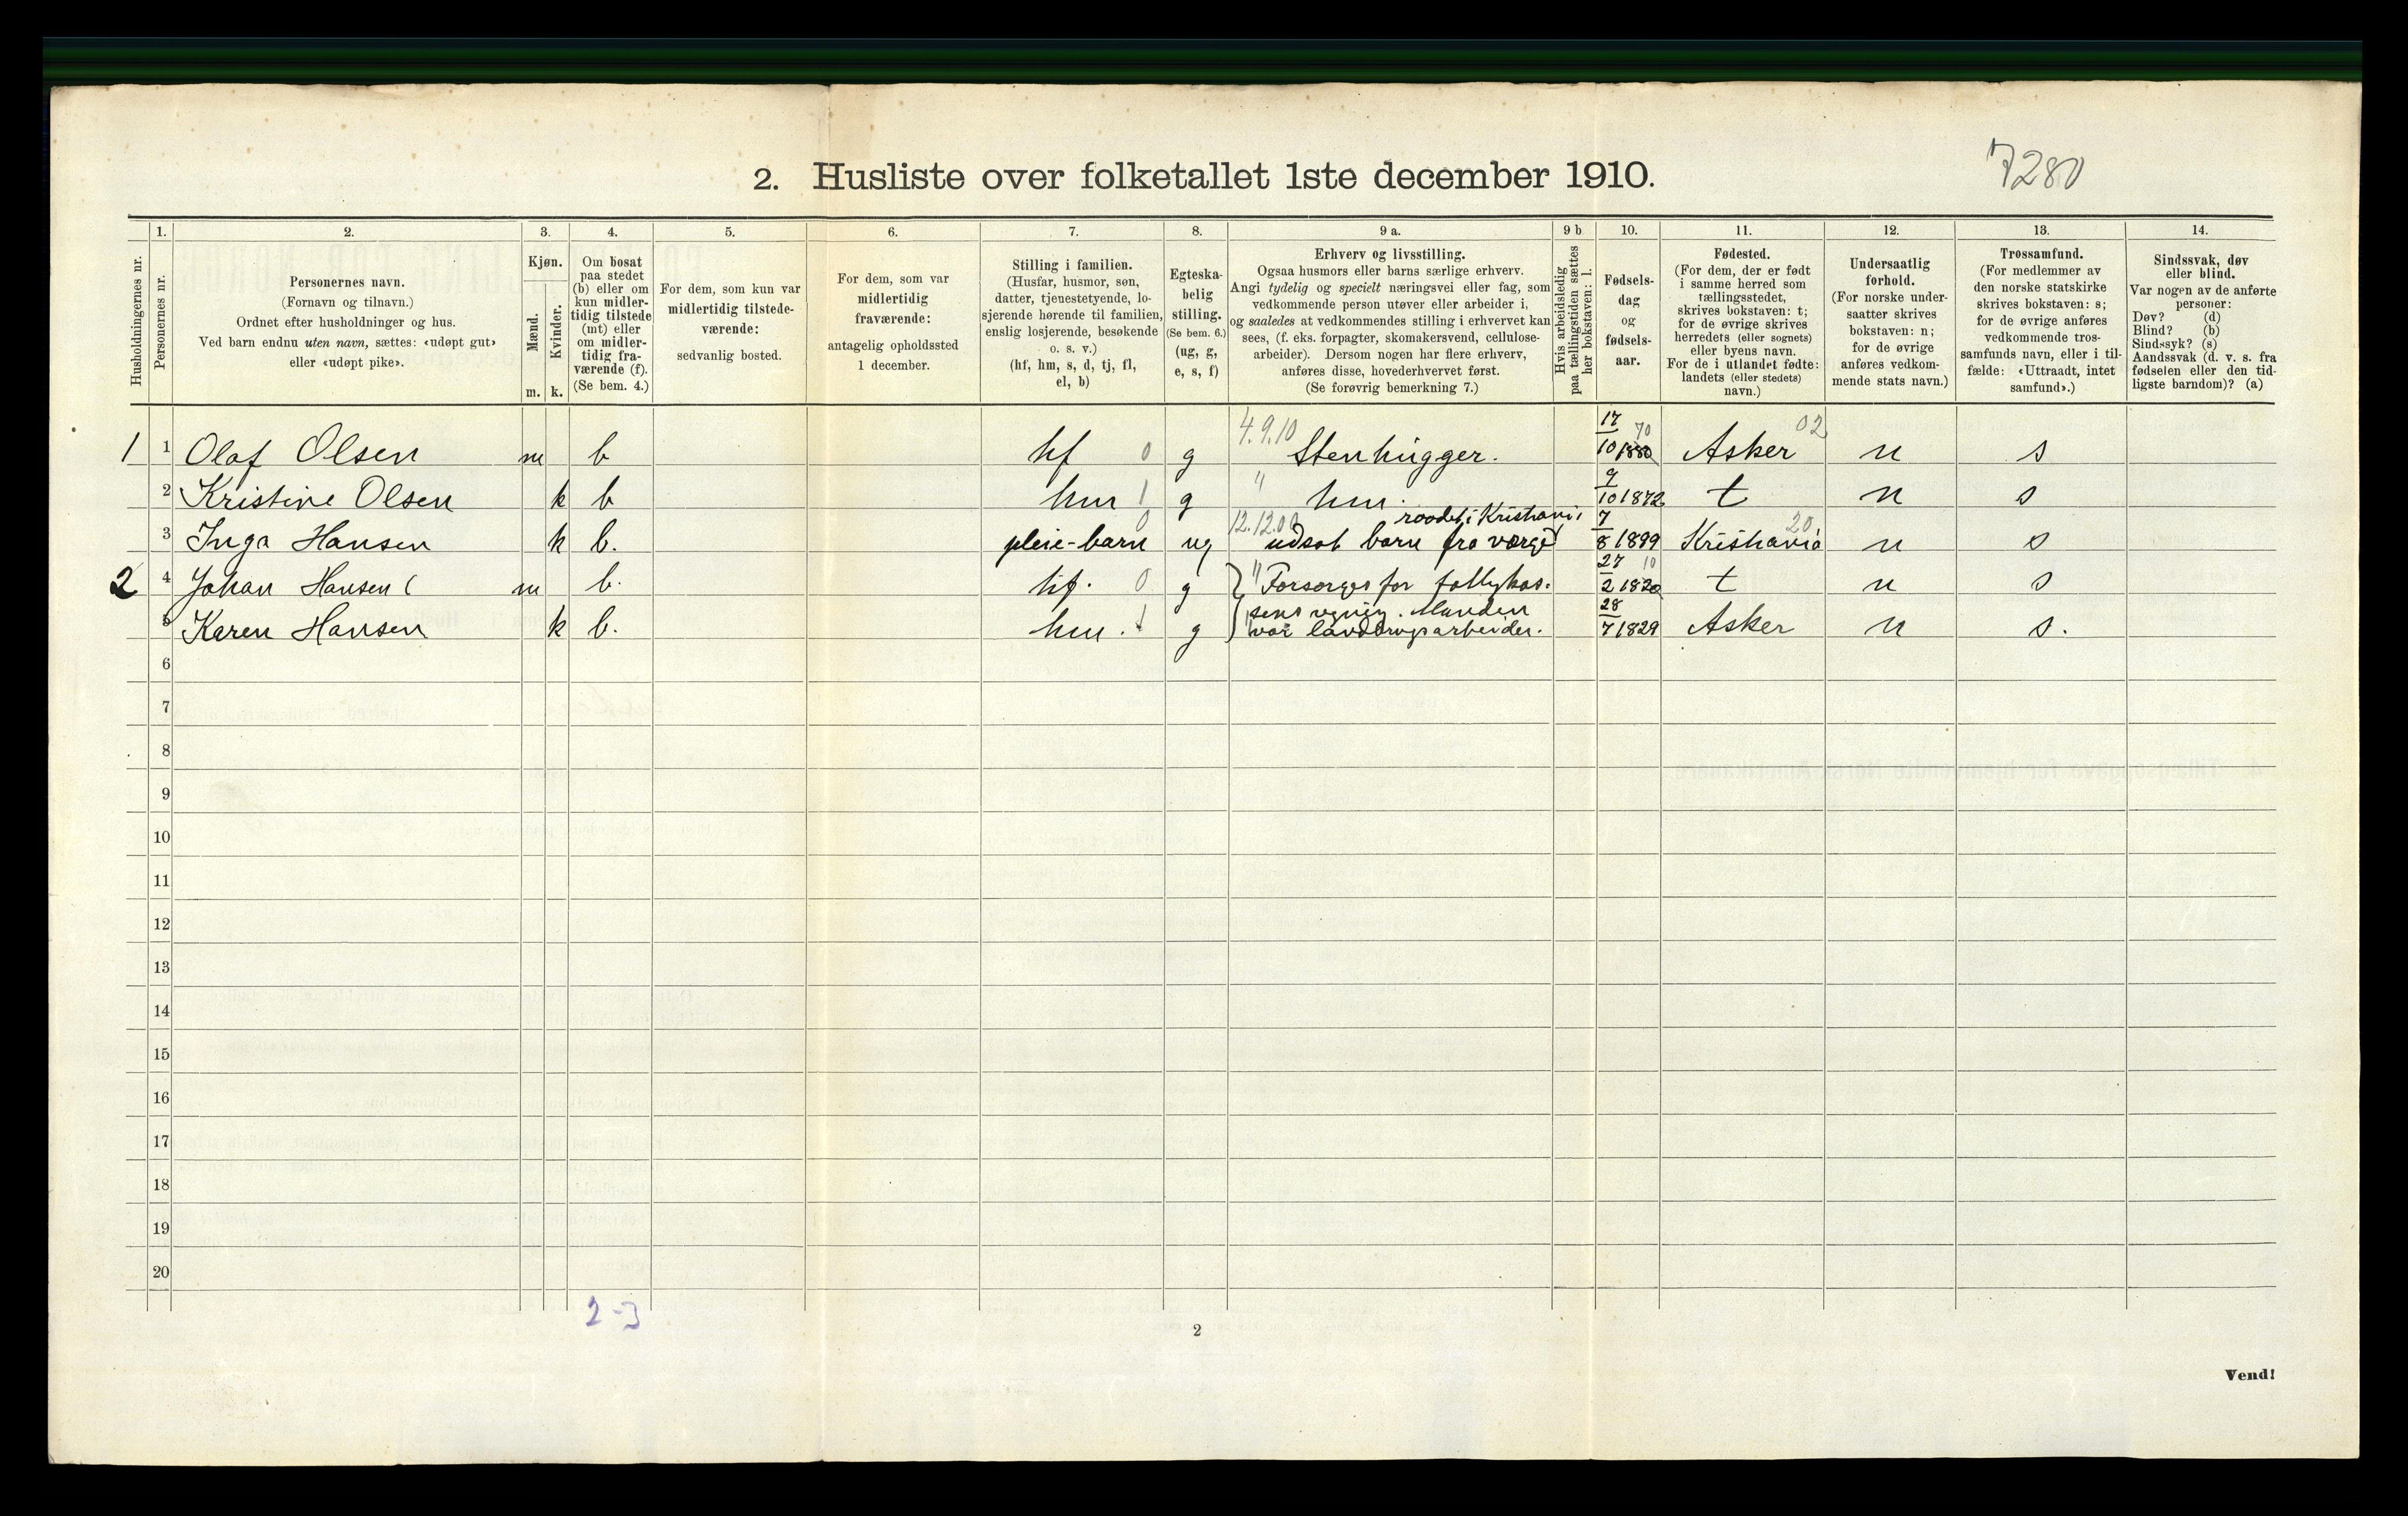 2. Husliste over folketallet 1ste december 1910.
7280
Husholdningernes nr.
1.
Personernes nr.
2.
Personernes navn.
(Fornavn og tilnavn.)
Ordnet efter husholdninger og hus.
Ved barn endnu uten navn, sættes: «udøpt gut»
eller «udøpt pike».
3.
Kjøn.
Mænd.
Kvinder.
m. k.
4.
Om bosat
paa stedet
(b) eller om
kun midler-
tidig tilstede
(mt) eller
om midler-
tidig fra-
værende (f).
(Se bem. 4.)
5.
For dem, som kun var
midlertidig tilstede-
værende:
sedvanlig bosted.
6.
For dem, som var
midlertidig
fraværende:
antagelig opholdssted
1 december.
7.
Stilling i familien.
(Husfar, husmor, søn,
datter, tjenestetyende, lo-
sjerende hørende til familien,
enslig losjerende, besøkende
o. s. v.)
(hf, hm, s, d, tj, fl,
el, b)
8.
Egteska-
belig
stilling.
(Se bem. 6.)
(ug, g,
e, s, f)
9 a.
Erhverv og livsstilling.
Ogsaa husmors eller barns særlige erhverv.
Angi tydelig og specielt næringsvei eller fag, som
vedkommende person utøver eller arbeider i,
og saaledes at vedkommendes stilling i erhvervet kan
sees, (f. eks. forpagter, skomakersvend, cellulose-
arbeider). Dersom nogen har flere erhverv,
anføres disse, hovederhvervet først.
(Se forøvrig bemerkning 7.)
9 b
Hvis arbeidsledig
paa tællingstiden sættes
her bokstaven: l.
10.
Fødsels-
dag
og
fødsels-
aar.
11.
Fødested.
(For dem, der er født
i samme herred som
tællingsstedet,
skrives bokstaven: t;
for de øvrige skrives
herredets (eller sognets)
eller byens navn.
For de i utlandet fødte:
landets (eller stedets)
navn.)
12.
Undersaatlig
forhold.
(For norske under-
saatter skrives
bokstaven: n;
for de øvrige
anføres vedkom-
mende stats navn.)
13.
Trossamfund.
(For medlemmer av
den norske statskirke
skrives bokstaven: s;
for de øvrige anføres
vedkommende tros-
samfunds navn, eller i til-
fælde: «Uttraadt, intet
samfund».)
14.
Sindssvak, døv
eller blind.
Var nogen av de anførte
personer:
Døv? (d)
Blind? (b)
Sindssyk? (s)
Aandssvak (d. v. s. fra
fødselen eller den tid-
ligste barndom)? (a)
1 1 Olaf Olsen m b hf 0 g 4.9.10 Stenhugger. 17/10 1880 70 Asker 02 n s
2 Kristine Olsen k b hm 1 g " hm. 9/10 1872 t n s
3 Inga Hansen k b. pleie-barn 0 ug 12.12.00 udsat barn fra værge 7/8 1899 Kristiania 20 n s
2 4 Johan Hansen m b. hf. 0 g " Forsørges for fattigkas. 27/2 1820 10 t n s
5 Karen Hansen k b. hm. 1 g var landbrugsarbeider. 28/7 1829 Asker n s.
6
7
8
9
10
11
12
13
14
15
16
17
18
19
20
2-3
2
Vend!